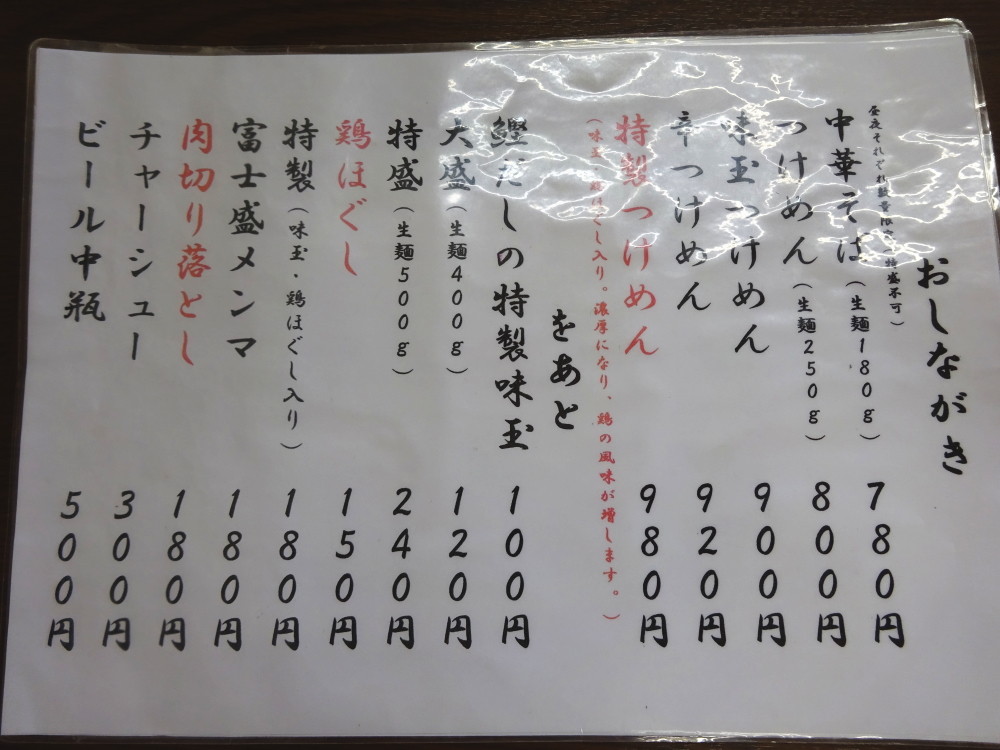 おしながき
昼夜それぞれ数量限定 特盛不可）
中華そば（生麺180g） 780円
つけめん（生麺250g） 800円
味玉つけめん 900円
辛つけめん 920円
特製つけめん 980円
（味玉・鶏ほぐし入り。濃厚になり、鶏の風味が増します。）
をあと
鰹だしの特製味玉 100円
大盛（生麺400g） 120円
特盛（生麺500g） 240円
鶏ほぐし 150円
特製（味玉・鶏ほぐし入り） 180円
富士盛メンマ 180円
肉切り落とし 180円
チャーシュー 300円
ビール中瓶 500円